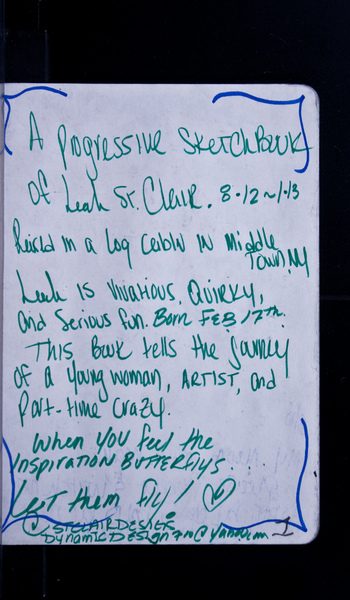 A Progressive Sketchbook
of Leah St. Clair. 8-12~1-13
in a Log in Middle
Town, NY
Leah is Vivatious, Quirky,
and Serious fun. Born Feb 17th.
This Book tells the journey
of a young woman, ARTIST, and
Part-time crazy.
When you feel the
Inspiration Butterflys.
Let them fly! ♡
@STCLAIRDESIGN
1